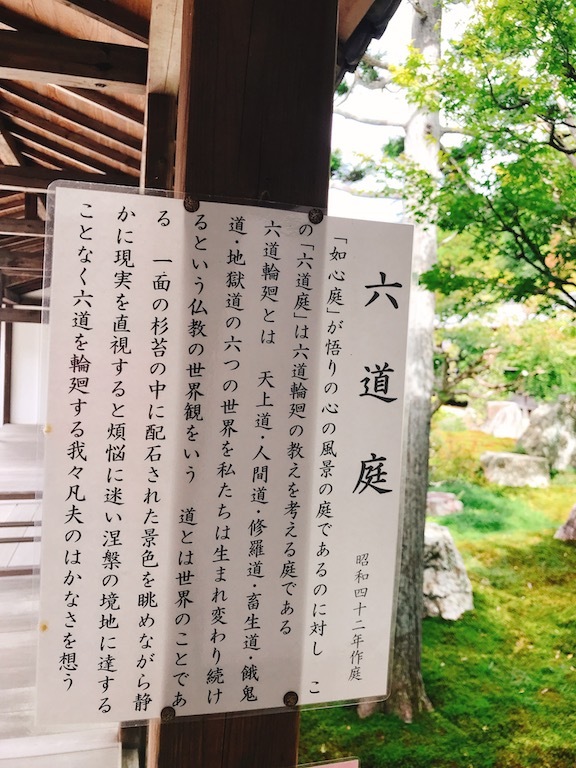 六道庭
昭和四十二年作庭
「如心庭」が悟りの心の風景の庭であるのに対し　こ
の「六道庭」は六道輪廻の教えを考える庭である
六道輪廻とは　天上道・人間道・修羅道・畜生道・餓鬼
道・地獄道の六つの世界を私たちは生まれ変わり続け
るという仏教の世界観をいう　道とは世界のことであ
る　一面の杉苔の中に配石された景色を眺めながら静
かに現実を直視すると煩悩に迷い涅槃の境地に達する
ことなく六道を輪廻する我々凡夫のはかなさを想う